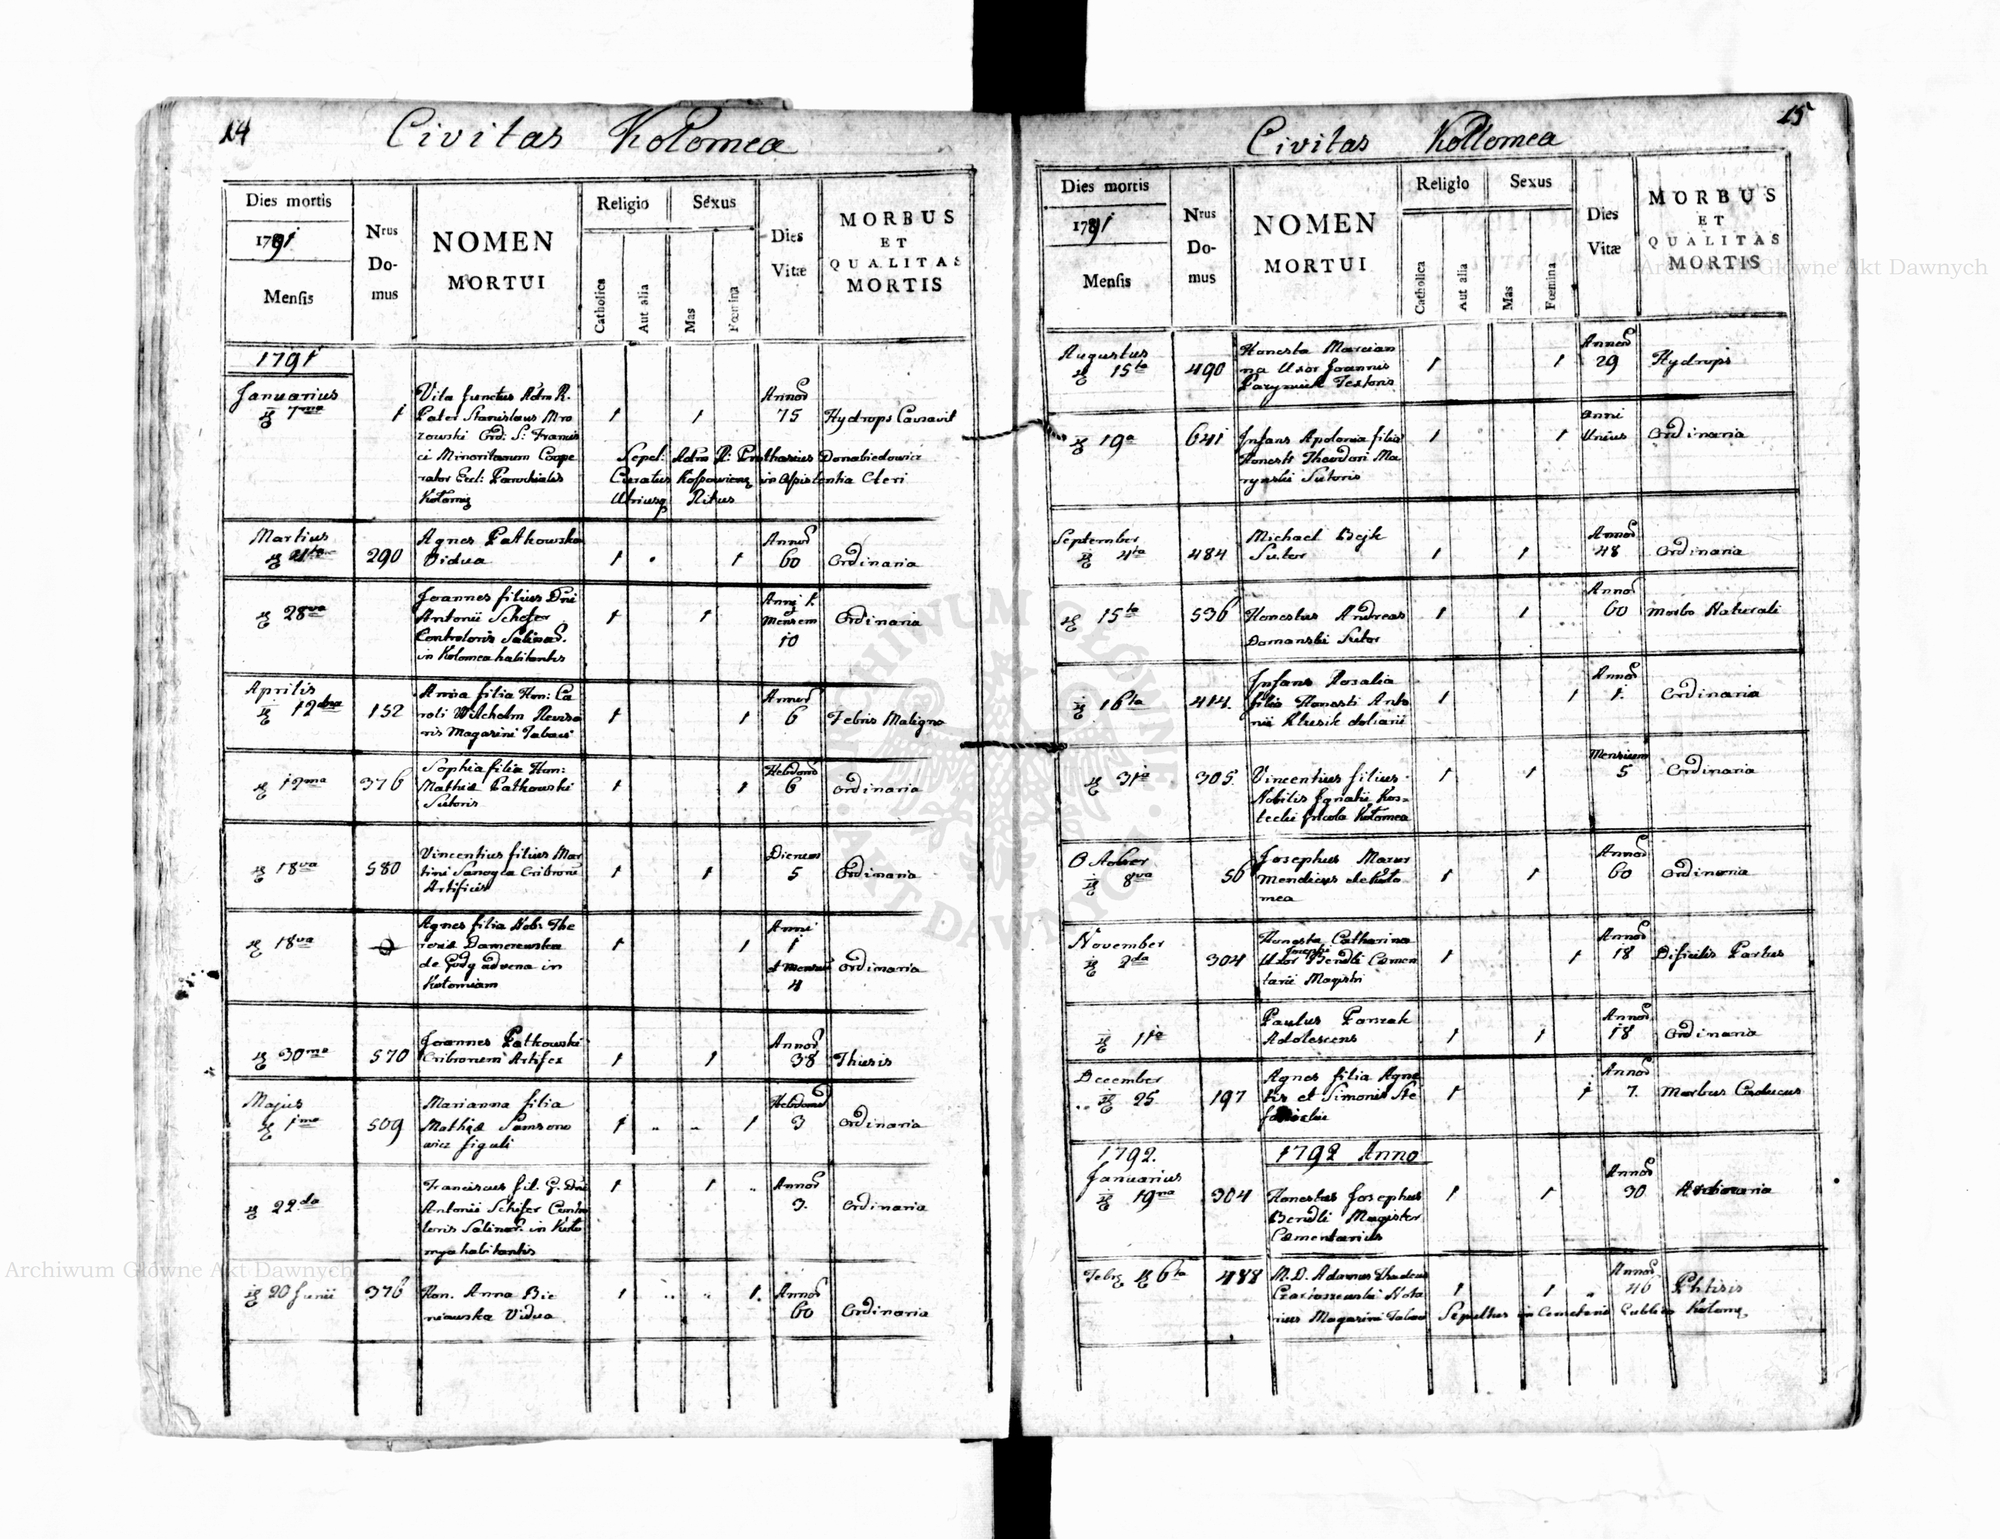 14
Civitas Kolomea
Dies mortis
1791
Mensis
Nrus
Do-
mus
NOMEN
MORTUI
Religio
Catholica
Aut alia
Sexus
Mas
Fœmina
Dies
Vitæ
MORBUS
ET
QUALITAS
MORTIS
1791
Januarius
7ma
1
Vita functus Adm R.
Pater Stanislaus Mro
zowski Ord: S: Francis
ci Minoritanum Coope
rator Eccl: Parochialis
Kolomiæ
1 1
Annor
75
Hydrops Causavit
Sepel: Adm R: Prothasius Donabiedowicz
Curatus in Assistentia Cleri
Utriusq Ritus
Martius
290
Agnes Patkowska
Vidua
1 1
Annor
60
Ordinaria
28va
Joannes filius Dni
Antonii Schefer
Controloris Salinar.
in Kolomea habitantis
1 1
Anni 1.
Mensem
10
Ordinaria
Aprilis
12dna
152
Anna filia Hon: Ca
roli Wilchelm Reviso
ris Magazini Tabaci
1 1
Annor
6
Febris Maligna
17ma
376
Sophia filia Hon:
Mathiæ Patkowski
Sutoris
1 1
Hebdomd
6
Ordinaria
18va
580
Vincentius filius Mar
tini Sanoyca Cribroru
Artificis
1 1
Dierum
5
Ordinaria
18va
0
Agnes filia Nob: The
resiæ Damerewska
de advena in
Kolomiam
1 1
Anni
1
et Mensiu
4
Ordinaria
30ma
570
Joannes Patkowski
Cribrorum Artifex
1 1
Annor
38
Thisis
Majus
1ma
509
Marianna filia
Mathiæ Samsono
wicz figuli
1 1
Hebdomd
3
Ordinaria
22da
Franciscus fil. G. Dni
Antonii Schifer Contro
loris Salinar. in Kolo
mya habitantis
1 1
Annor
3.
Ordinaria
20 Junii
376
Hon. Anna Bie
niawska Vidua
1 1.
Annor
60
Ordinaria
15
Civitas Kollomea
Dies mortis
1791
Mensis
Nrus
Do-
mus
NOMEN
MORTUI
Religio
Catholica
Aut alia
Sexus
Mas
Fœmina
Dies
Vitæ
MORBUS
ET
QUALITAS
MORTIS
Augustus
15ta
490
Honesta Marcian
na Uxor Joannis
Parymiuk Textoris
1 1
Annor
29
Hydrops
19a
641
Infans Apolonia filia
Honesti Theodori Ma
rynski Sutoris
1 1
Anni
Unius
Ordinaria
September
4ta
484
Michael Bejk
Sutor
1 1
Annor
48
Ordinaria
15ta
536
Honestus Andreas
Domanski Sutor
1 1
Annor
60
Morbo Naturali
16ta
414.
Infans Rosalia
filia Honesti Anto
nii Klusik doliarii
1 1
Annor
1.
Ordinaria
31a
305.
Vincentius filius
Nobilis Ignatii Kos=
tecki Incola Kolomea
1 1
Mensium
5
Ordinaria
October
8va
56
Josephus Mazur
Mendicus de Kolo
mea
1 1
Annor
60
Ordinaria
November
2da
304
Honesta Catharina
Josephi
Uxor Bendli Cæmen
tarii Magistri
1 1
Annor
18
Dificilis Partus
11a
Paulus Panzak
Adolescens
1 1
Annor
18
Ordinaria
December
25
197
Agnes filia Agne
tis et Simonis Ste
fanicki
1 1
Annor
7.
Morbus Caducus
1792.
1792 Anno
Januarius
19na
304
Honestus Josephus
Bendli Magister
Cæmentarius
1 1
Annor
30
Ordinaria
Febr 6ta
488
M. D. Adamus Thadeus
Nota
rius Magazini Tabaci
1 1
Annor
46
Phtisis
Sepultus in Cemeterio Publico Kolomæ
Archiwum Główne Akt Dawnych
Archiwum Główne Akt Dawnych
ARCHIWUM GŁÓWNE
AKT DAWNYCH